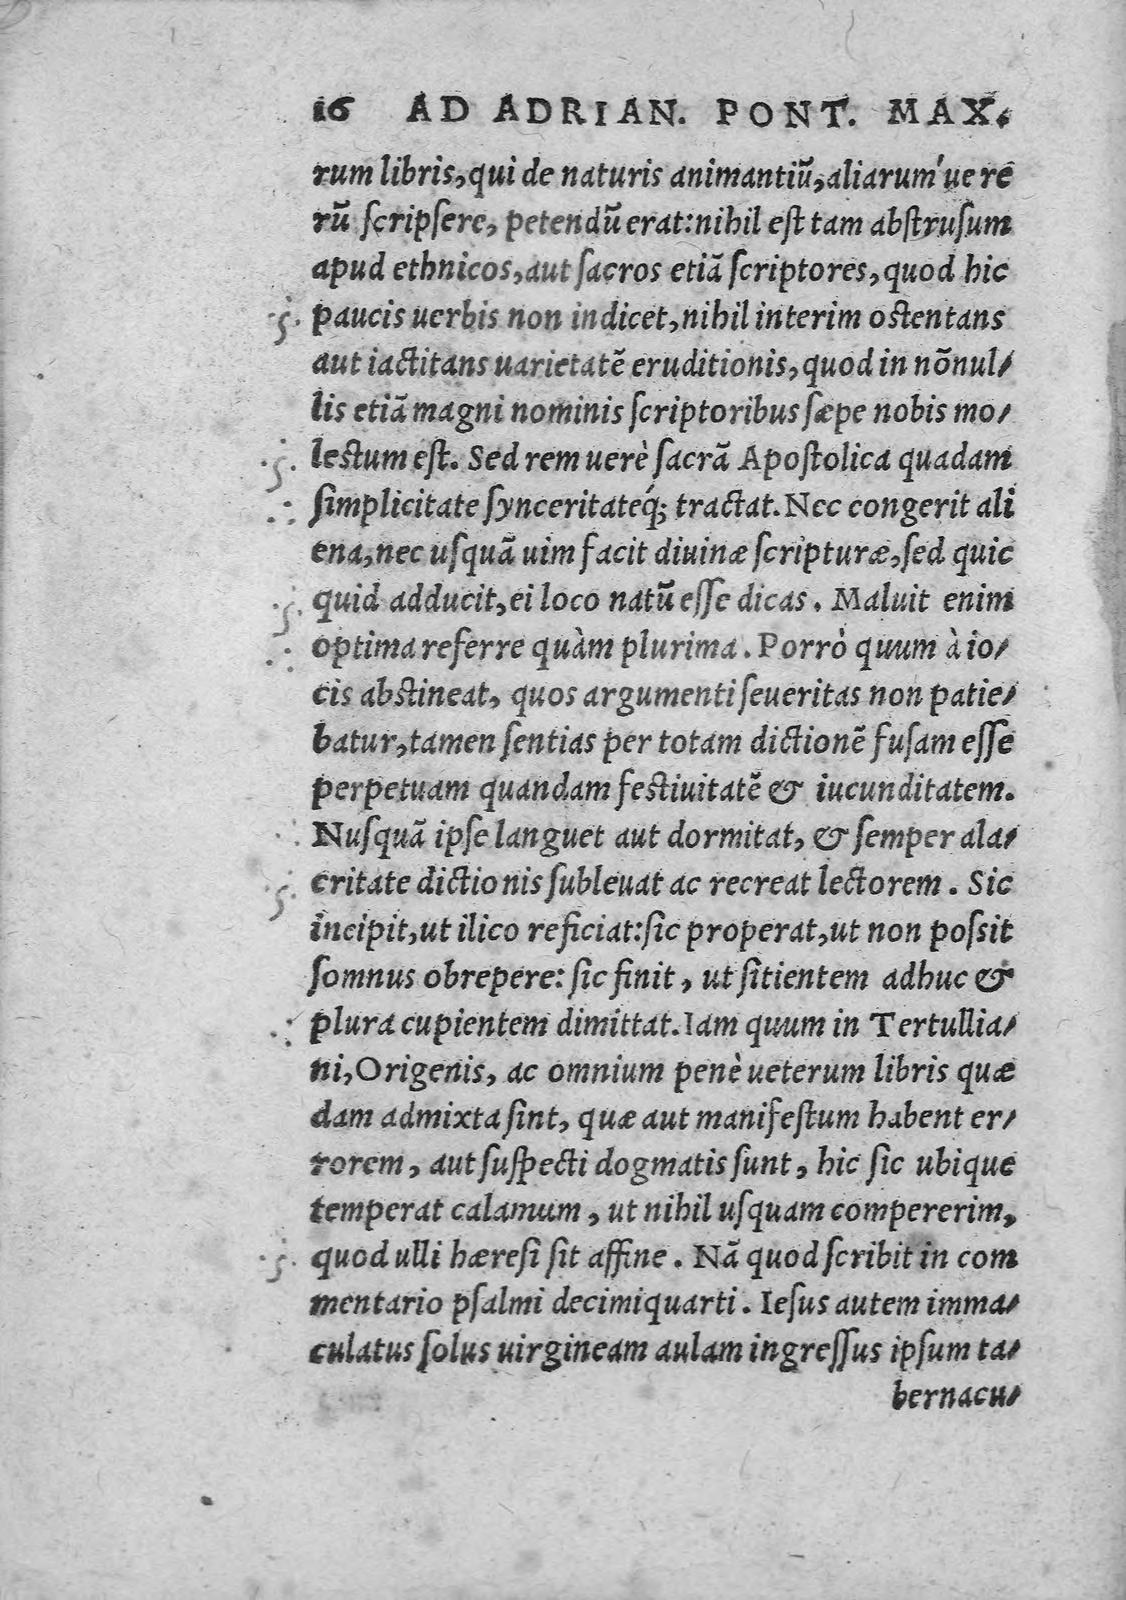 16 AD ADRIAN. PONT. MAX.
rum libris, qui de naturis animantiũ, aliaruḿue re
rũ ſcripſere, petendũ erat: nihil eſt tam abſtruſum
apud ethnicos, aut ſacros etiã ſcriptores, quod hic
paucis uerbis non indicet, nihil interim oſtentans
aut iactitans uarietatẽ eruditionis, quod in nõnul/
lis etiã magni nominis ſcriptoribus ſæpe nobis mo/
leſtum eſt. Sed rem uerè ſacrã Apoſtolica quadam
ſimplicitate ſynceritateq́; tractat. Nec congerit ali
ena, nec uſquã uim facit diuinæ ſcripturæ, ſed quic
quid adducit, ei loco natũ eſſe dicas. Maluit enim
optima referre quàm plurima. Porrò quum à io/
cis abſtineat, quos argumenti ſeueritas non patie/
batur, tamen ſentias per totam dictionẽ fuſam eſſe
perpetuam quandam feſtiuitatẽ & iucunditatem.
Nuſquã ipſe languet aut dormitat, & ſemper ala/
critate dictionis ſubleuat ac recreat lectorem. Sic
incipit, ut ilico reficiat: ſic properat, ut non poſsit
ſomnus obrepere: ſic finit, ut ſitientem adhuc &
plura cupientem dimittat. Iam quum in Tertullia/
ni, Origenis, ac omnium penè ueterum libris quæ
dam admixta ſint, quæ aut manifeſtum habent er/
rorem, aut ſuſpecti dogmatis ſunt, hic ſic ubique
temperat calamum, ut nihil uſquam compererim,
quod ulli hæreſi ſit affine. Nã quod ſcribit in com
mentario pſalmi decimiquarti. Ieſus autem imma/
culatus ſolus uirgineam aulam ingreſſus ipſum ta/
bernacu/